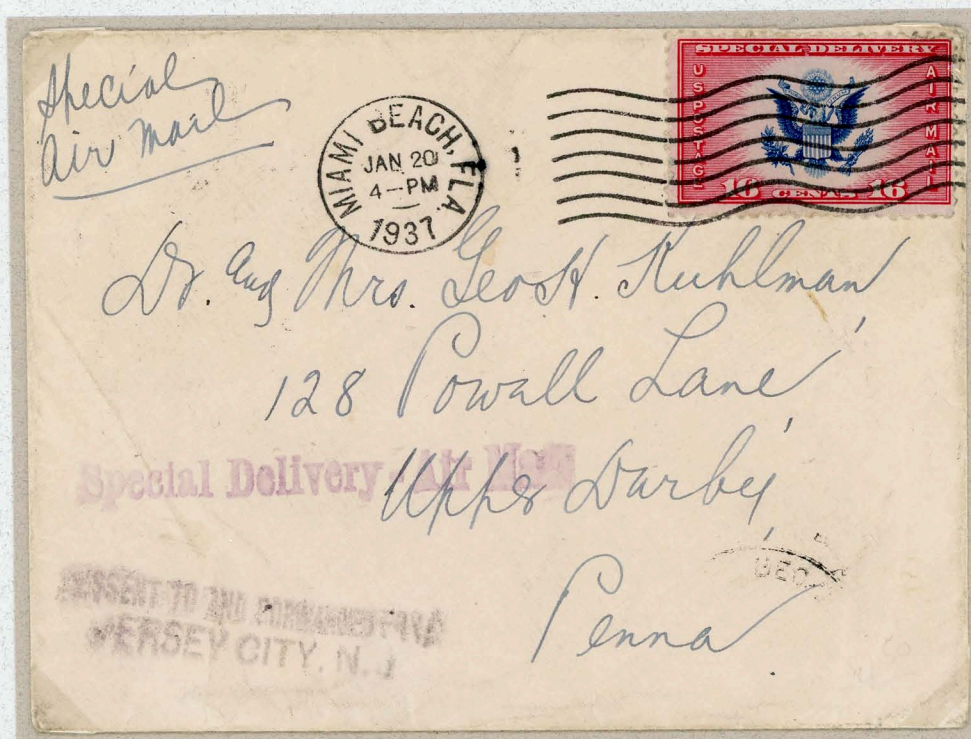 Special
Air Mail
MIAMI BEACH, FLA.
JAN 20
4-PM
1937
SPECIAL DELIVERY
U S POSTAGE
AIR MAIL
16 CENTS 16
Dr. and Mrs. Geo H. Kuhlman,
128 Powell Lane,
Upper Darby,
Penna
Special Delivery - Air Mail
MISSENT TO AND FORWARDED FROM
JERSEY CITY, N.J
DEC